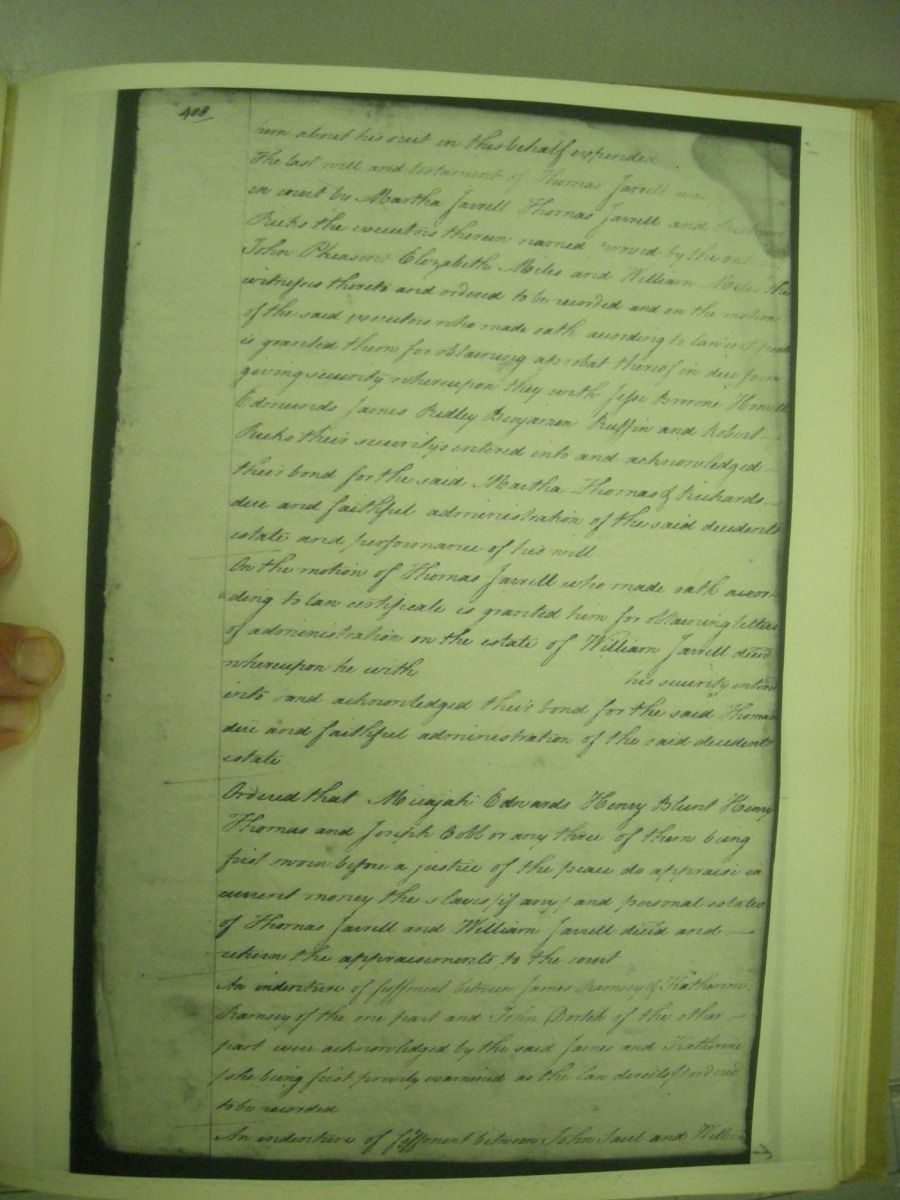 408
him about his suit in this behalf expended
The last will and testament of Thomas Jarrell was
in court by Martha Jarrell Thomas Jarrell and Richard
Ricks the executors therein named proved by the oath
John Pheasent Elizabeth Miles and William Miles the
witnesses thereto and ordered to be recorded and on the motion
of the said executors who made oath according to law certificate
is granted them for obtaining a probat thereof in due form
giving security whereupon they with Jesse Browne Howell
Edmunds James Ridley Benjamin Ruffin and Robert
Ricks their securitys entered into and acknowledged
their bond for the said Martha Thomas & Richards
due and faithful administration of the said decedents
estate and performance of his will
On the motion of Thomas Jarrell who made oath accor-
ding to law certificate is granted him for obtaining letters
of administration on the estate of William Jarrell decd
whereupon he with his security entered
into and acknowledged their bond for the said Thomas
due and faithful administration of the said decedents
estate
Ordered that Micajah Edwards Henry Blunt Henry
Thomas and Joseph Cobb or any three of them being
first sworn before a justice of the peace do appraise in
current money the slaves (if any) and personal estates
of Thomas Jarrell and William Jarrell decd and
return the appraisements to the court
An indenture of feoffment between James Ramsey & Katherine
Ramsey of the one part and John Dortch of the other
part were acknowledged by the said James and Katherine
(she being first privily examined as the law directs) & ordered
to be recorded
An indenture of feoffment between John and Will